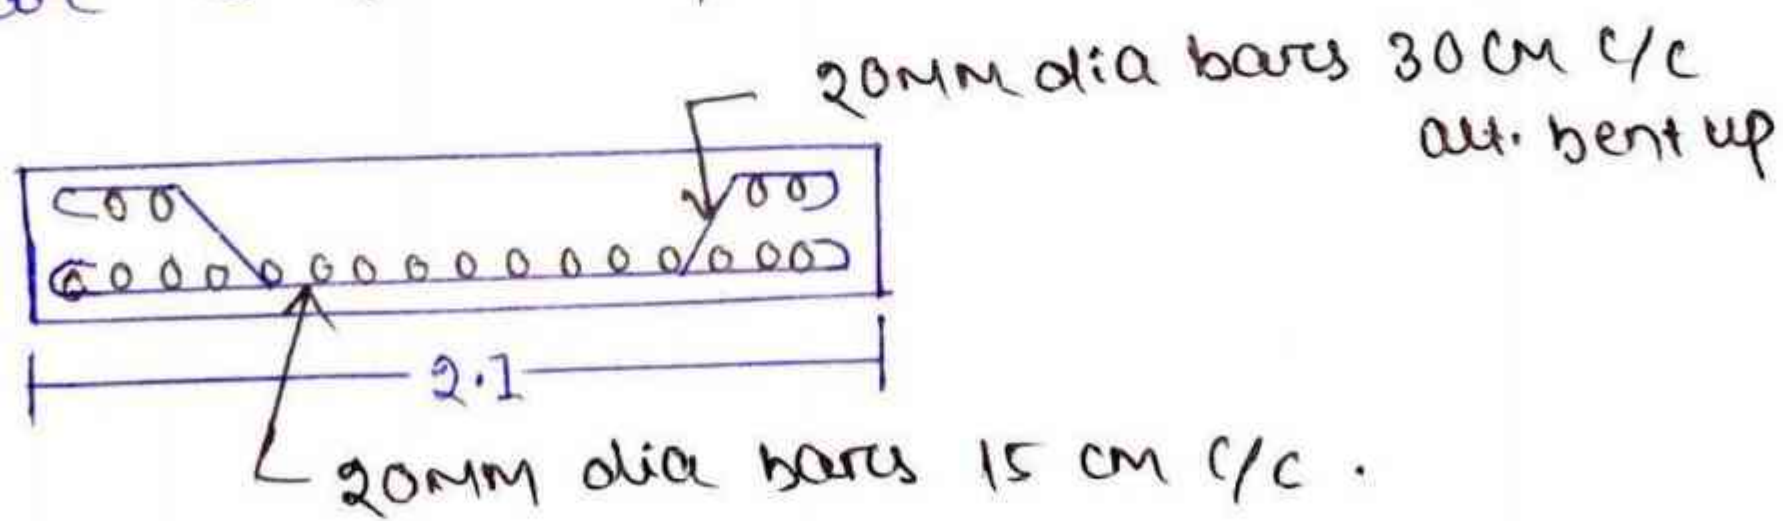 20MM dia bars 30 CM C/C
alt. bent up
2.1
20MM dia bars 15 CM C/C.